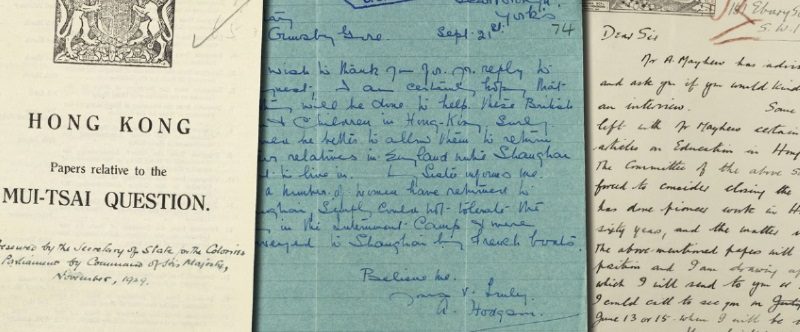 HONG KONG
Papers relative to the
MUI-TSAI QUESTION.
Presented by the Secretary of State for the Colonies
Parliament by Command of His Majesty,
November, 1929.
Yorks
74
Ormsby Gore Sept. 21st
wish to thank you for yr. reply to
I am certainly hoping that
will be done to help these British
& Children in Hong-Kong. Surely
be better to allow them to return
relatives in England until Shanghai
to live in. informs me
a number of women have returned to
Simply could not tolerate the
in the Internment Camp & were
conveyed to Shanghai by French boats.
Believe me.
Yours v. truly
A. Hodgson.
Ebury
S.W.1
Dear Sir
Mr A. Mayhew has
and ask you if you would
an interview. Some
left with Mr Mayhew certain
articles on Education in
The Committee of the above
forced to consider closing the
has done pioneer work in
sixty years, and the matter
The above mentioned papers will
position and I am drawing
which I will send to you
I could call to see you on
June 13 or 15. when I will be